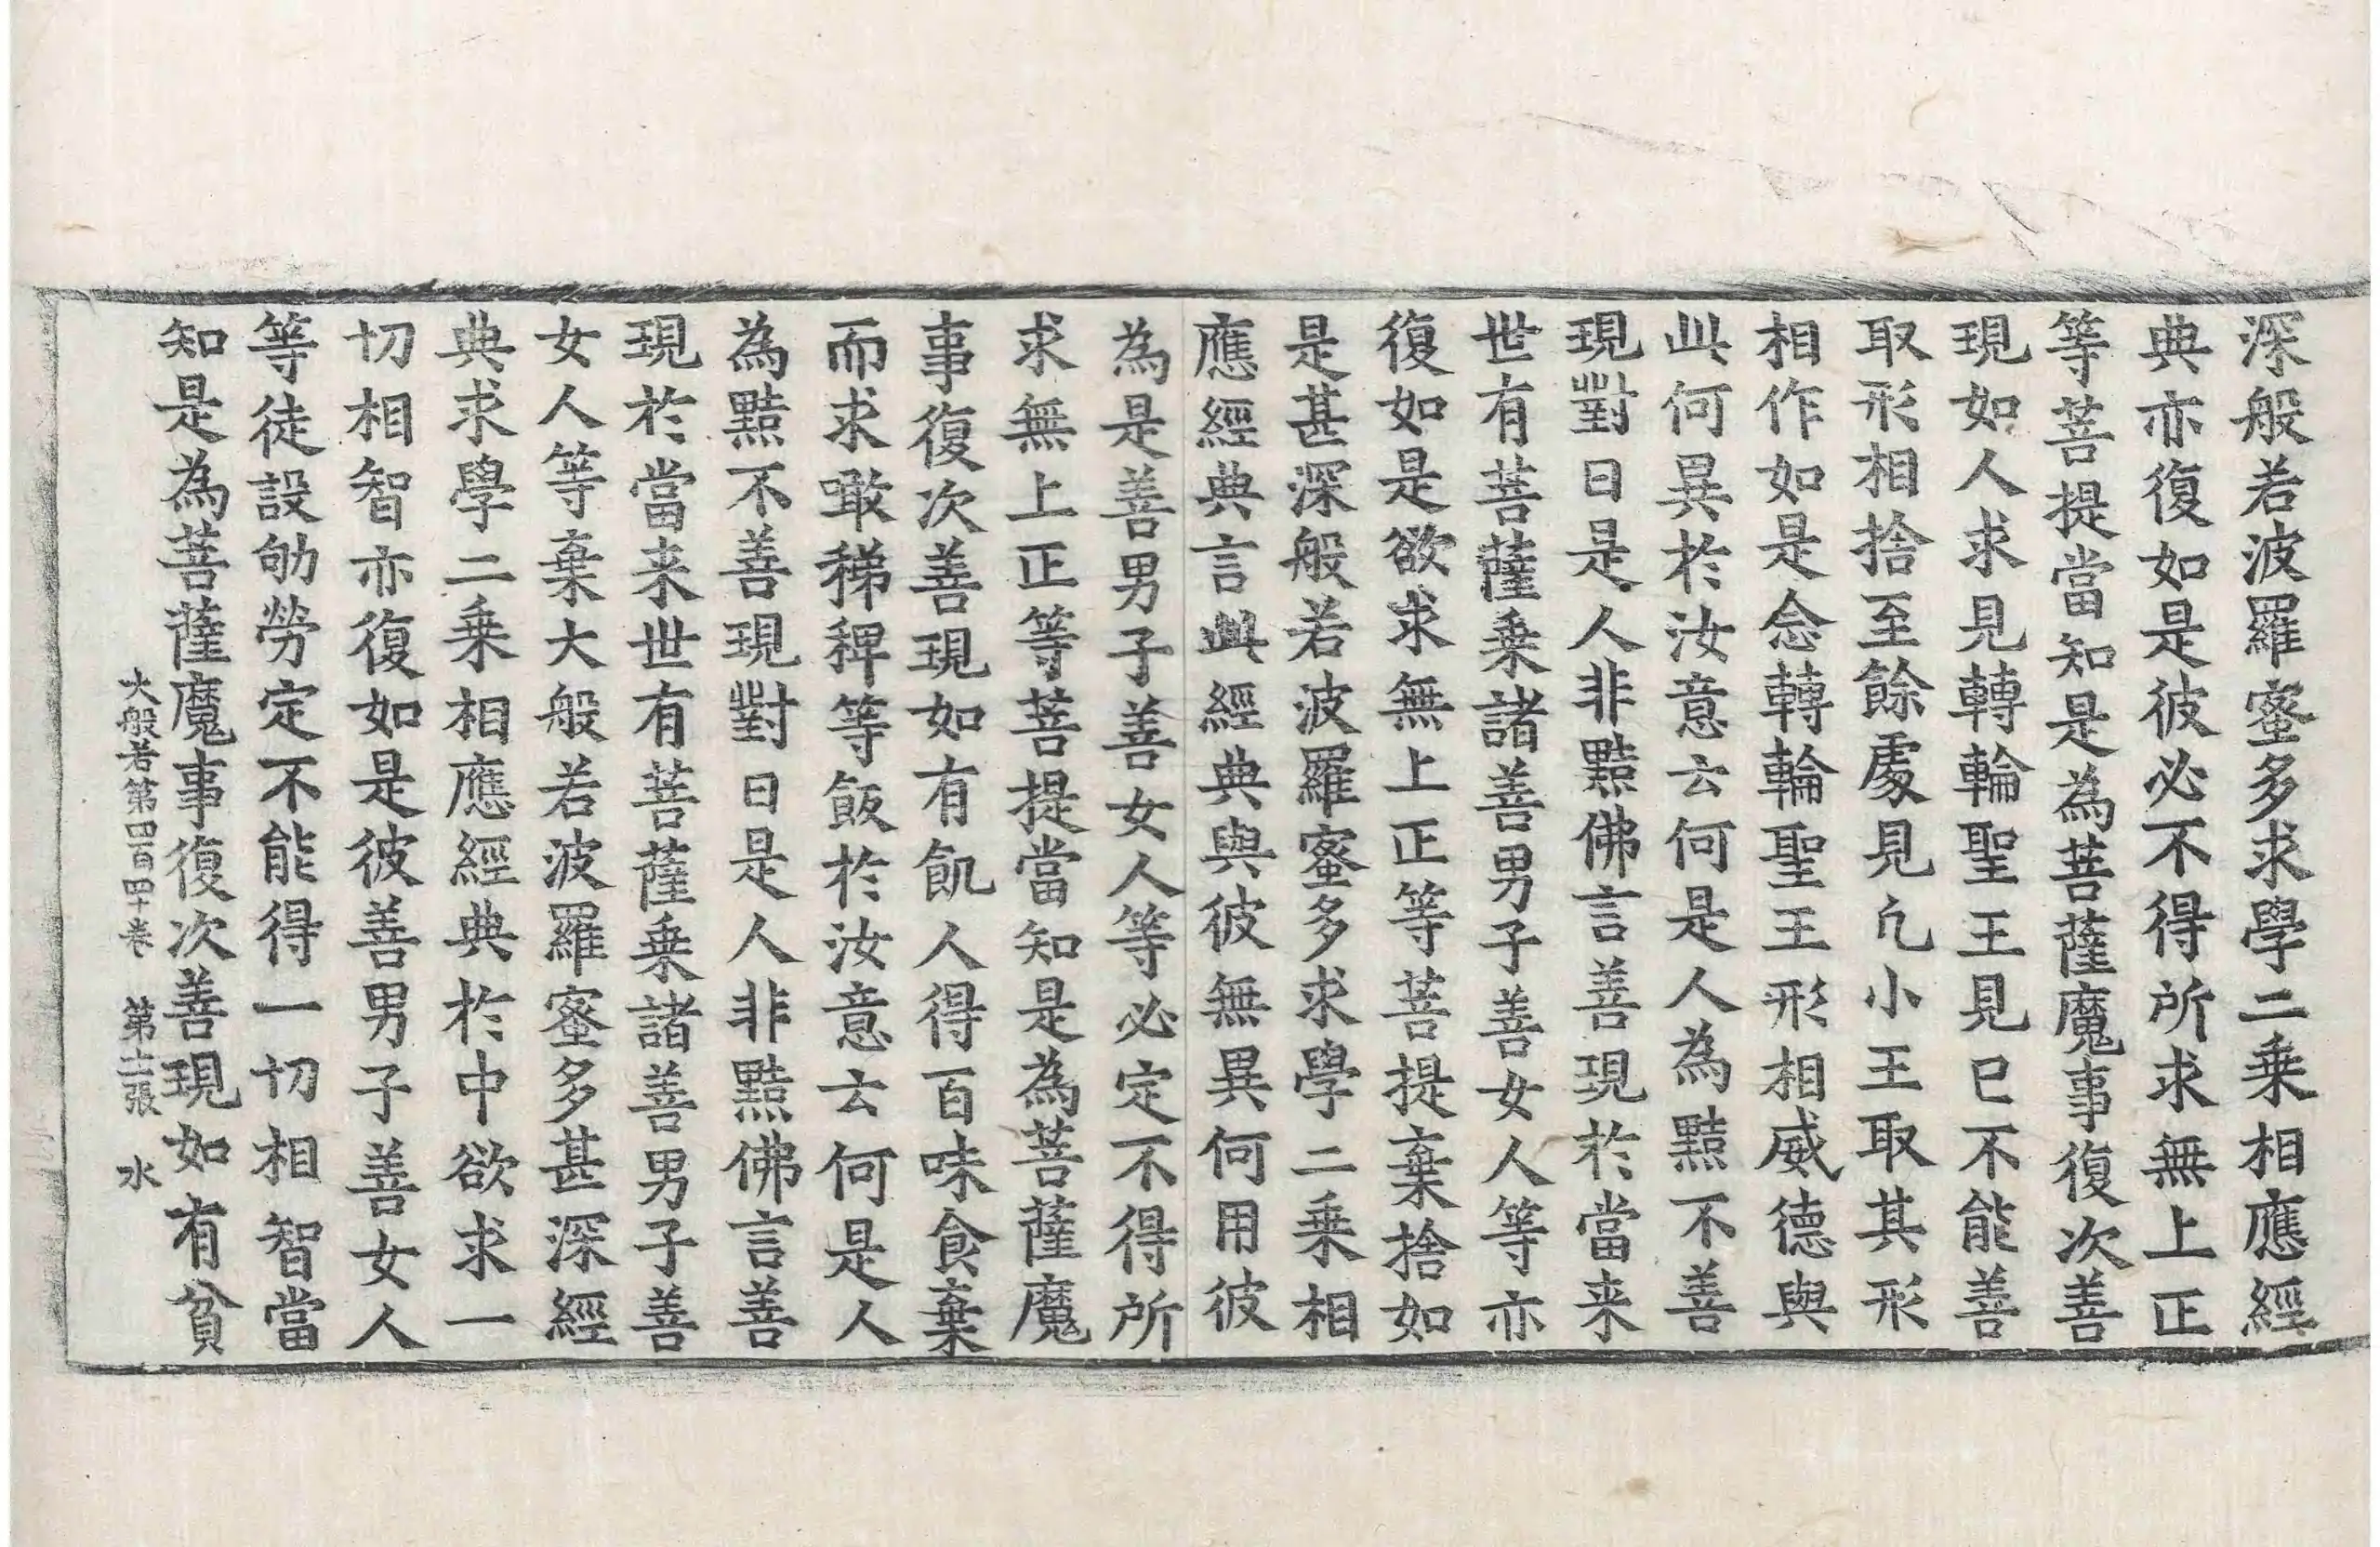 深般若波羅蜜多求學二乗相應經
典亦復如是彼必不得所求無上正
等菩提當知是為菩薩魔事復次善
現如人求見轉輪聖王見已不能善
取形相捨至餘處見凢小王取其形
相作如是念轉輪聖王形相威德與
此何異於汝意云何是人為黠不善
現對曰是人非黠佛言善現於當来
世有菩薩乗諸善男子善女人等亦
復如是欲求無上正等菩提棄捨如
是甚深般若波羅蜜多求學二乗相
應經典言此經典與彼無異何用彼
為是善男子善女人等必定不得所
求無上正等菩提當知是為菩薩魔
事復次善現如有飢人得百味食棄
而求噉稊稗等飯於汝意云何是人
為黠不善現對曰是人非黠佛言善
現於當来世有菩薩乗諸善男子善
女人等棄大般若波羅蜜多甚深經
典求學二乗相應經典於中欲求一
切相智亦復如是彼善男子善女人
等徒設劬勞定不能得一切相智當
知是為菩薩魔事復次善現如有貧
大般若第四百四十卷 第十二張 水